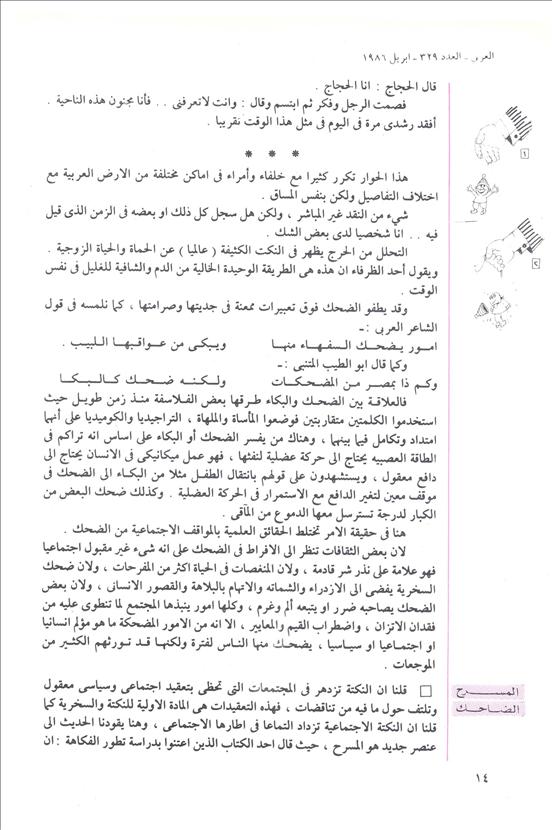 العربي - العدد ٣٢٩ - ابريل ١٩٨٦
قال الحجاج : انا الحجاج .
فصمت الرجل وفكر ثم ابتسم وقال : وانت لاتعرفنى . . فأنا مجنون هذه الناحية .
أفقد رشدى مرة فى اليوم فى مثل هذا الوقت تقريبا .
* * *
هذا الحوار تكرر كثيرا مع خلفاء وأمراء فى اماكن مختلفة من الارض العربية مع
اختلاف التفاصيل ولكن بنفس المساق .
شيء من النقد غير المباشر ، ولكن هل سجل كل ذلك او بعضه فى الزمن الذى قيل
فيه . . انا شخصيا لدى بعض الشك .
التحلل من الحرج يظهر فى النكت الكثيفة ( عالميا ) عن الحماة والحياة الزوجية .
ويقول أحد الظرفاء ان هذه هى الطريقة الوحيدة الخالية من الدم والشافية للغليل فى نفس
الوقت .
وقد يطفو الضحك فوق تعبيرات ممعنة فى جديتها وصرامتها ، كما نلمسه فى قول
الشاعر العربى :ـ
امور يضحك السفهاء منها ويبكى من عواقبها اللبيب .
وكما قال ابو الطيب المتنبى :ـ
وكم ذا بمصر من المضحكات ولكنه ضحك كالبكا
فالعلاقة بين الضحك والبكاء طرقها بعض الفلاسفة منذ زمن طويل حيث
استخدموا الكلمتين متقاربتين فوضعوا المأساة والملهاة ، التراجيديا والكوميديا على أنهما
امتداد وتكامل فيما بينهما ، وهناك من يفسر الضحك أو البكاء على اساس انه تراكم فى
الطاقة العصبيه يحتاج الى حركة عضلية لنفثها ، فهو عمل ميكانيكى فى الانسان يحتاج الى
دافع معقول ، ويستشهدون على قولهم بانتقال الطفل مثلا من البكاء الى الضحك فى
موقف معين لتغير الدافع مع الاستمرار فى الحركة العضلية . وكذلك ضحك البعض من
الكبار لدرجة تسترسل معها الدموع من المآقى .
هنا فى حقيقة الامر تختلط الحقائق العلمية بالمواقف الاجتماعية من الضحك .
لان بعض الثقافات تنظر الى الافراط فى الضحك على انه شىء غير مقبول اجتماعيا
فهو علامة على نذر شر قادمة ، ولان المنغصات فى الحياة اكثر من المفرحات ، ولان ضحك
السخرية يفضى الى الازدراء والشماته والاتهام بالبلاهة والقصور الانسانى ، ولان بعض
الضحك يصاحبه ضرر او يتبعه ألم وغرم ، وكلها امور ينبذها المجتمع لما تنطوى عليه من
فقدان الاتزان ، واضطراب القيم والمعايير ، الا انه من الامور المضحكة ما هو مؤلم انسانيا
او اجتماعيا او سياسيا ، يضحك منها الناس لفترة ولكنها قد تورثهم الكثير من
الموجعات .
المسرح
الضاحك
قلنا ان النكتة تزدهر فى المجتمعات التى تحظى بتعقيد اجتماعى وسياسى معقول
وتلتف حول ما فيه من تناقضات ، فهذه التعقيدات هى المادة الاولية للنكتة والسخرية كما
قلنا ان النكتة الاجتماعية تزداد التماعا فى اطارها الاجتماعى ، وهنا يقودنا الحديث الى
عنصر جديد هو المسرح ، حيث قال احد الكتاب الذين اعتنوا بدراسة تطور الفكاهة : ان
١٤
١
٢